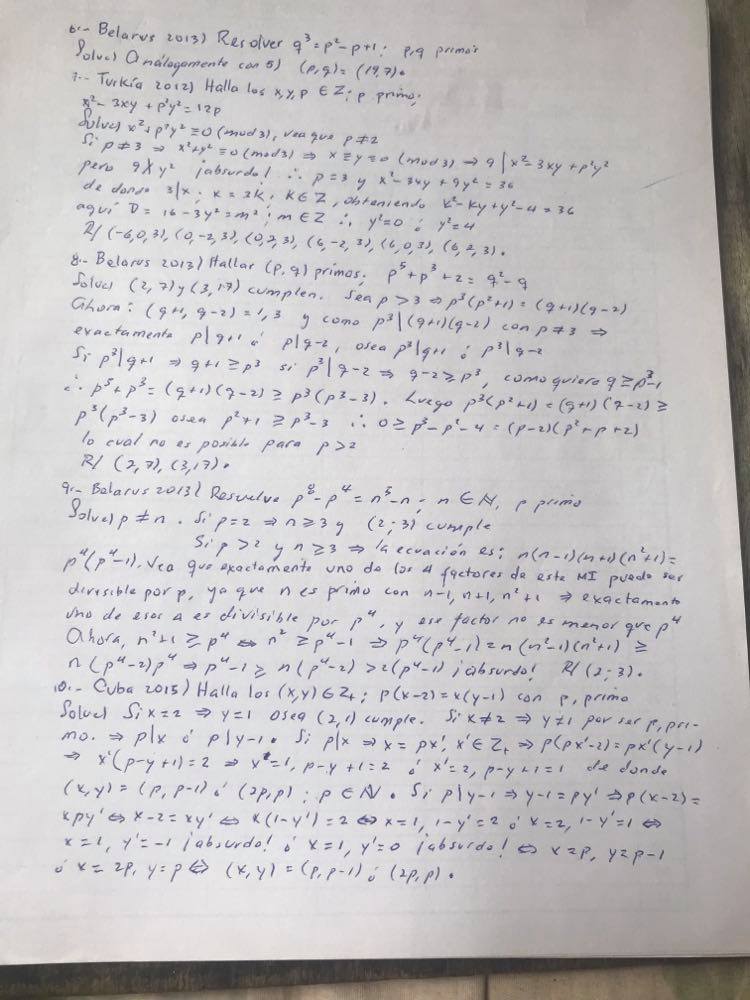 6.- Belarus 2013) Resolver q³ = p² - p + 1; p, q primos
Soluc) Análogamente con 5) (p,q) = (19,7).
7.- Turkía 2012) Halla los x, y, p ∈ Z; p primo;
x² - 3xy + p²y² = 12p
Soluc) x² + p²y² ≡ 0 (mod 3), vea que p ≠ 2
Si p ≠ 3 ⇒ x² + y² ≡ 0 (mod 3) ⇒ x ≡ y ≡ 0 (mod 3) ⇒ 9 | x² - 3xy + p²y²
pero 9 ∤ y² ¡absurdo! ∴ p = 3 y x² - 3xy + 9y² = 36
de donde 3|x; x = 3k; k ∈ Z, obteniendo k² - ky + y² - 4 = 36
aquí D = 16 - 3y² = m²; m ∈ Z ∴ y² = 0 ó y² = 4
R/ (-6,0,3), (0,-2,3), (0,2,3), (6,-2,3), (6,0,3), (6,2,3).
8.- Belarus 2013) Hallar (p, q) primos; p⁵ + p³ + 2 = q² - q
Soluc) (2, 7) y (3, 17) cumplen. Sea p > 3 ⇒ p³(p²+1) = (q+1)(q-2)
Ahora: (q+1, q-2) = 1, 3 y como p³ | (q+1)(q-2) con p ≠ 3 ⇒
exactamente p | q+1 ó p | q-2, osea p³ | q+1 ó p³ | q-2
Si p³ | q+1 ⇒ q+1 ≥ p³ si p³ | q-2 ⇒ q-2 ≥ p³, como quiera q ≥ p³-1
∴ p⁵ + p³ = (q+1)(q-2) ≥ p³(p³-3). Luego p³(p²+1) = (q+1)(q-2) ≥
p³(p³-3) osea p²+1 ≥ p³-3 ∴ 0 ≥ p³-p²-4 = (p-2)(p²+p+2)
lo cual no es posible para p > 2
R/ (2,7), (3,17).
9.- Belarus 2013) Resuelve p⁸ - p⁴ = n⁵ - n; n ∈ N, p primo
Soluc) p ≠ n. Si p = 2 ⇒ n ≥ 3 y (2; 3) cumple
Si p > 2 y n ≥ 3 ⇒ la ecuación es: n(n-1)(n+1)(n²+1) =
p⁴(p⁴-1). Vea que exactamente uno de los 4 factores de este MI puede ser
divisible por p, ya que n es primo con n-1, n+1, n²+1 ⇒ exactamente
uno de esos 4 es divisible por p⁴, y ese factor no es menor que p⁴
Ahora, n²+1 ≥ p⁴ ⇔ n² ≥ p⁴-1 ⇒ p⁴(p⁴-1) = n(n²-1)(n²+1) ≥
n(p⁴-2)p⁴ ⇒ p⁴-1 ≥ n(p⁴-2) > 2(p⁴-1) ¡absurdo! R/ (2; 3).
10.- Cuba 2015) Halla los (x, y) ∈ Z₊; p(x-2) = x(y-1) con p, primo
Soluc) Si x = 2 ⇒ y = 1 osea (2, 1) cumple. Si x ≠ 2 ⇒ y ≠ 1 por ser p, pri-
mo. ⇒ p|x ó p|y-1. Si p|x ⇒ x = px', x' ∈ Z₊ ⇒ p(px'-2) = px'(y-1)
⇒ x'(p-y+1) = 2 ⇒ x' = 1, p-y+1 = 2 ó x' = 2, p-y+1 = 1 de donde
(x, y) = (p, p-1) ó (2p, p); p ∈ N. Si p|y-1 ⇒ y-1 = py' ⇒ p(x-2) =
xpy' ⇔ x-2 = xy' ⇔ x(1-y') = 2 ⇔ x = 1, 1-y' = 2 ó x = 2, 1-y' = 1 ⇔
x = 1, y' = -1 ¡absurdo! ó x = 1, y' = 0 ¡absurdo! ⇔ x = p, y = p-1
ó x = 2p, y = p ⇔ (x, y) = (p, p-1) ó (2p, p).